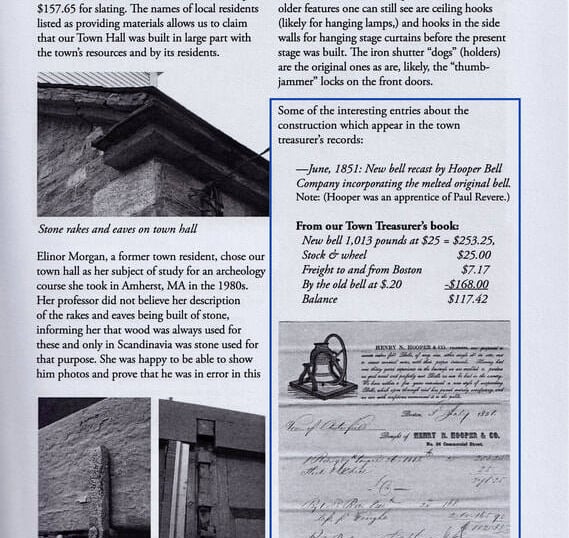 $157.65 for slating. The names of local residents
listed as providing materials allows us to claim
that our Town Hall was built in large part with
the town's resources and by its residents.
Stone rakes and eaves on town hall
Elinor Morgan, a former town resident, chose our
town hall as her subject of study for an archeology
course she took in Amherst, MA in the 1980s.
Her professor did not believe her description
of the rakes and eaves being built of stone,
informing her that wood was always used for
these and only in Scandinavia was stone used for
that purpose. She was happy to be able to show
him photos and prove that he was in error in this
older features one can still see are ceiling hooks
(likely for hanging lamps,) and hooks in the side
walls for hanging stage curtains before the present
stage was built. The iron shutter "dogs" (holders)
are the original ones as are, likely, the "thumb-
jammer" locks on the front doors.
Some of the interesting entries about the
construction which appear in the town
treasurer's records:
—June, 1851: New bell recast by Hooper Bell
Company incorporating the melted original bell.
Note: (Hooper was an apprentice of Paul Revere.)
From our Town Treasurer's book:
New bell 1,013 pounds at $25 = $253.25,
Stock & wheel $25.00
Freight to and from Boston $7.17
By the old bell at $.20 -$168.00
Balance $117.42
HENRY N. HOOPER & CO.
Boston, July 1851
Town of
Bought of HENRY N. HOOPER & CO.
No. 24 Commercial Street.